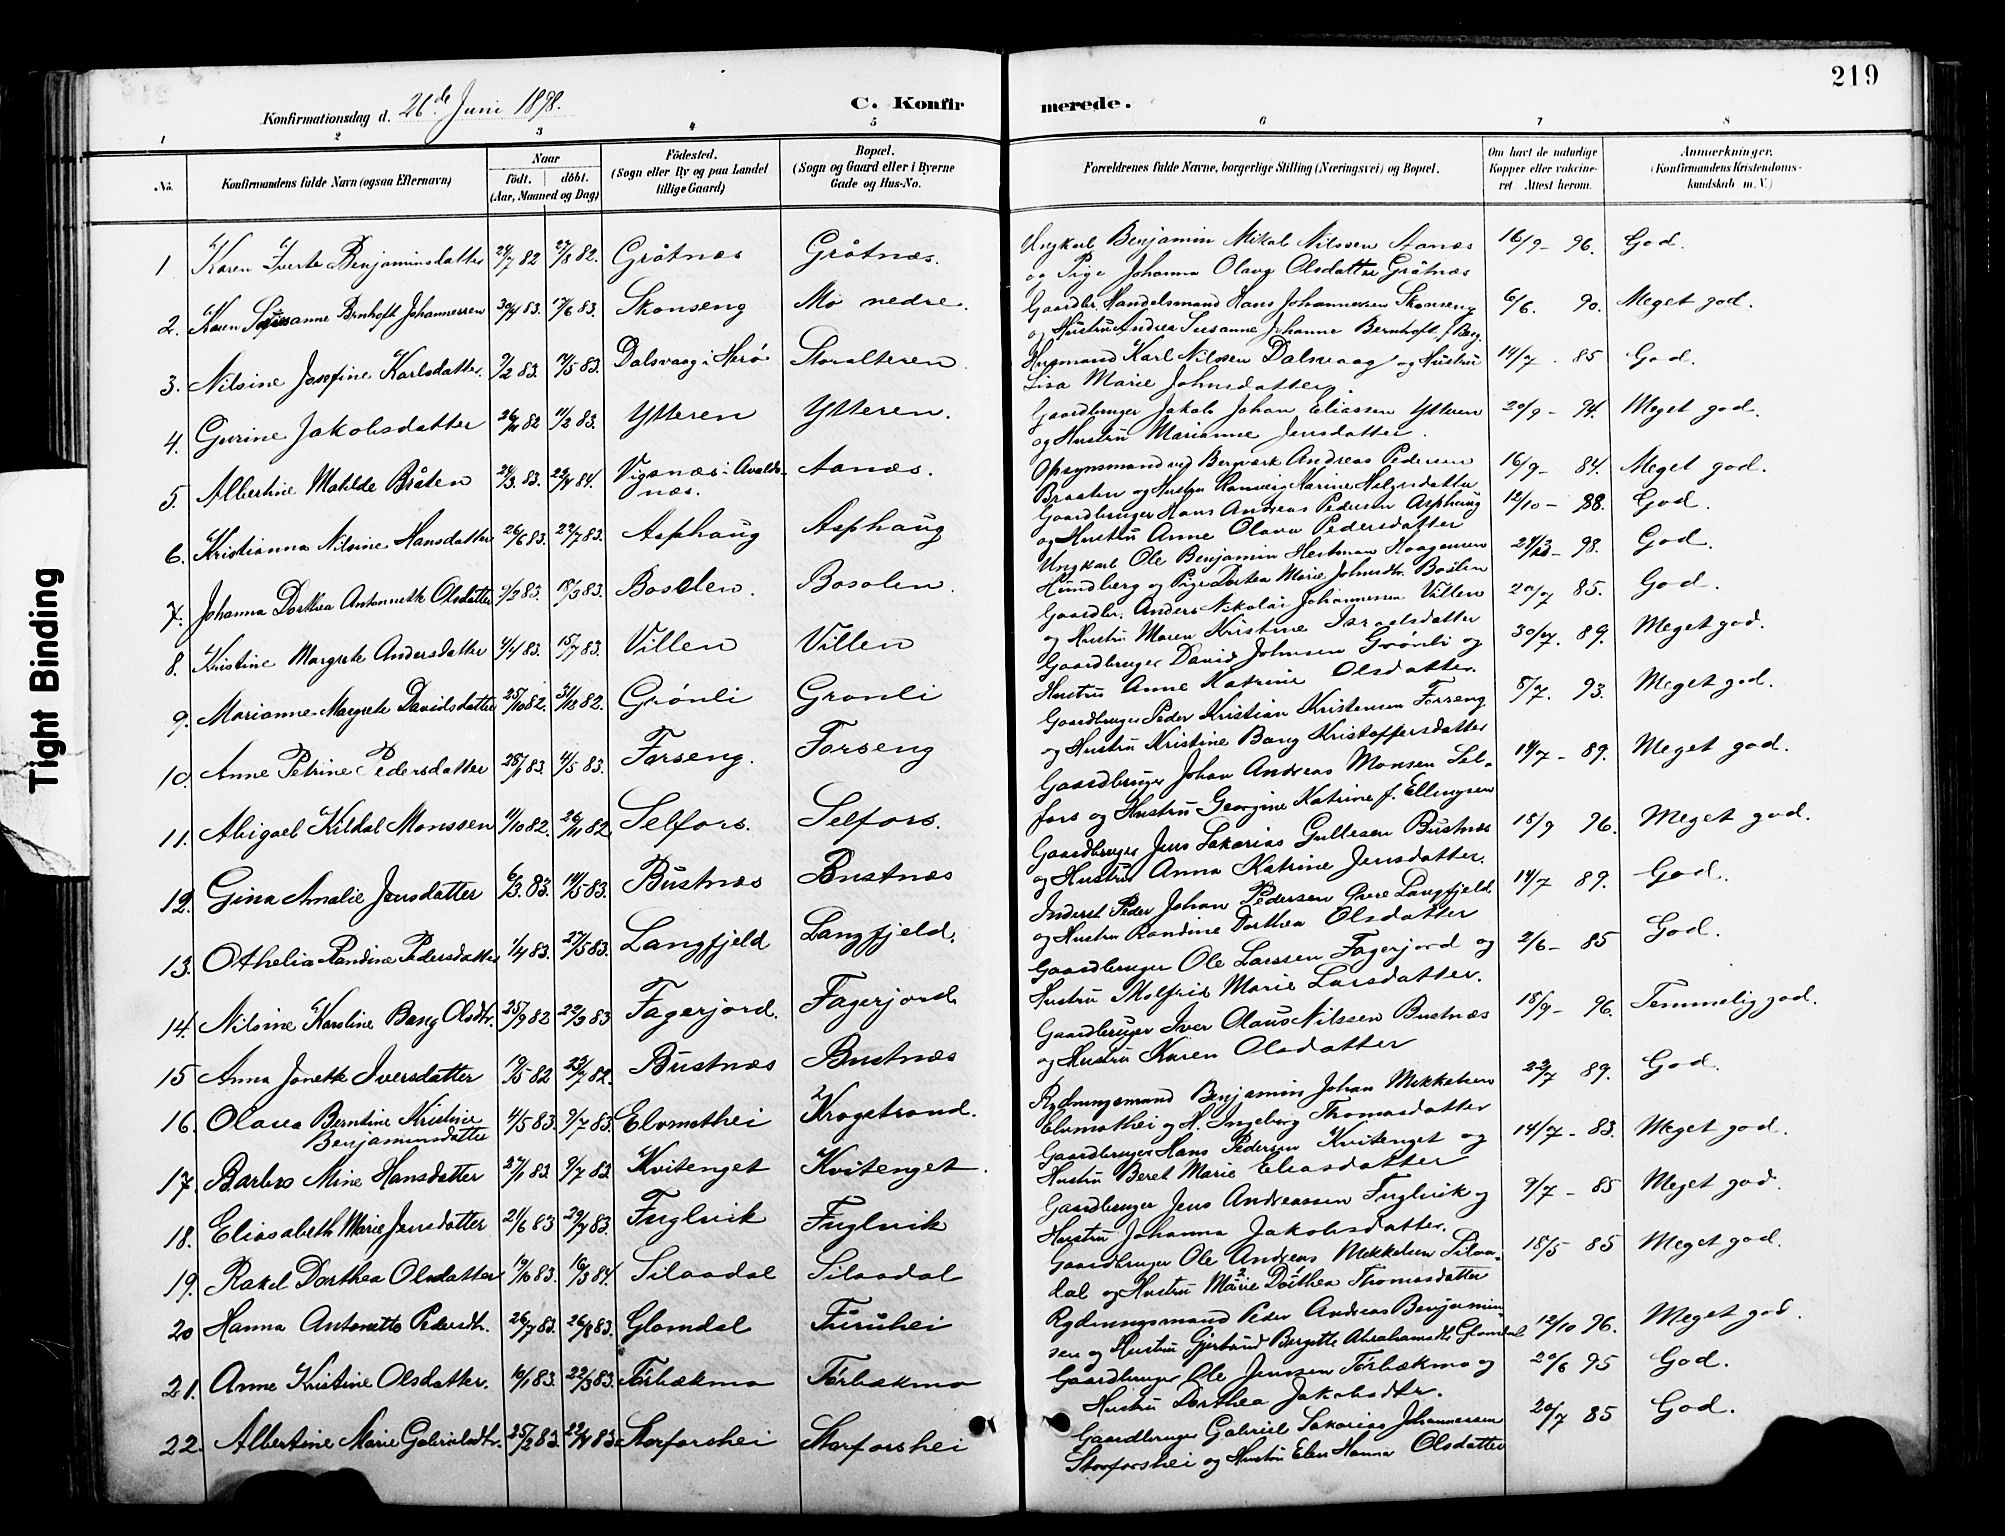 219
Konfirmationsdag d. 26de Juni 1898.
C. Konfir merede.
1 2 3 4 5 6 7 8
No. Konfirmandens fulde Navn (ogsaa Efternavn) Naar født. døbt. (Aar, Maaned og Dag) Fødested. (Sogn eller By og paa Landet tillige Gaard) Bopæl. (Sogn og Gaard eller i Byerne Gade og Hus-No. Forældrenes fulde Navne, borgerlige Stilling (Næringsvei) og Bopæl. Om havt de naturlige Kopper eller vaccineret. Attest herom. Anmærkninger. (Konfirmandens Kristendomskundskab m. V.)
1 Karen Iverte Benjaminsdatter 24/7 82 27/8 82. Gråtnæs Gråtnæs. Ungkarl Benjamin Mikal Nilssen Aanæs 16/9 - 96. God.
og Pige Johanna Olava Olsdatter Gråtnæs
2. Karen Susanne Bernhoft Johannessen 30/4 83. 17/6 83. Skonseng Mo nedre. Gaardbr. Handelsmand Hans Johannessen Skonseng 6/6. 90. Meget god.
og Hustru Andrea Susanne Johanne Bernhoft f. Berg
3. Nilsine Josefine Karlsdatter. 7/2 83. 14/5 83. Dalsvaag i Herø Storalteren Husmand Karl Nilssen Dalsvaag og Hustru 14/7. 85 God.
Lisa Marie Johnsdatter
4. Gurine Jakobsdatter 26/11 82 11/2 83. Ytteren Ytteren. Gaardbruger Jakob Johan Eliassen Ytteren 20/9 - 94. Meget god.
og Hustru Marianne Jensdatter.
5. Albertine Matilde Bråten 24/3. 83. 22/4 84. Vigsnæs i Avaldsnæs. Aanæs. Opsynsmand ved Bergværk Andreas Pedersen 16/9 - 84. Meget god.
Braaten og Hustru Karine
6. Kristianna Nilsine Hansdatter 26/6 83. 29/7 83. Asphaug Asphaug Gaardbruger Hans Andreas Pedersen Asphaug 12/10 - 88. God.
og Hustru Anne Olava Pedersdatter
7. Johanna Dorthea Antonnette Olsdatter 9/3 83. 18/3 83. Bosolen. Bosolen. Ungkarl Ole Benjamin Hertman Haagensen - 98. God.
Hundberg og Pige Dortea Marie Johnsdtr. Bosolen
8. Kristine Margrete Andersdatter 4/4 83. 15/7 83. Villen Villen Gaardbr. Anders Nikolai Johannessen Villen 20/7 85. God.
og Hustru Maren Kristine Israelsdatter
9. Marianne Margrete Davidsdatter 25/10 82. 31/12 82. Grønli Grønli Gaardbruger David Johnsen Grønli og 30/7. 89. Meget god.
Hustru Anne Katrine Olsdatter.
10. Anne Petrine Pedersdatter 28/1 83. 4/5 83. Forseng. Forseng Gaardbruger Peder Kristian Kristensen Forseng 8/7. 93. Meget god.
og Hustru Kristine Bang Kristoffersdatter
11. Abigael Kildal Monssen 4/10 82. 26/11 82 Selfors. Selfors. Gaardbruger Johan Andreas Monsen Sel- 14/7 - 89. Meget god.
fors og Hustru Georgine Katrine f. Ellingsen
12. Gina Amalie Jensdatter 6/3. 83. 14/5 83. Bustnæs Bustnæs Gaardbruger Jens Sakarias Gullesen Bustnæs 18/9 96. Meget god.
og Hustru Anna Katrine Jensdatter.
13. Othelia Randine Pedersdatter 1/4 83. 27/5 83. Langfjeld Langfjeld. Inderst Peder Johan Pedersen Langfjeld 14/7 89. God.
og Hustru Randine Dorthea Olsdatter
14. Nilsine Karoline Bang Olsdtr. 25/9 82 22/3 83 Fagerjord. Fagerjord Gaardbruger Ole Larssen Fagerjord og 2/6 - 85 God.
Hustru Molfrid Marie Larsdatter.
15 Anna Jonette Iversdatter 19/5 82 23/7 82. Bustnæs Bustnæs Gaardbruger Iver Olaus Nilssen Bustnæs 18/9 - 96. Temmelig god.
og Hustru Karen Olsdatter
16. Olava Berntine Kristine Benjaminsdatter 4/5 83. 9/7 83. Elvmothei Krogstrand. Rydningsmand Benjamin Johan Mikkelsen 22/7 89. God.
Elvmothei og H. Ingeborg Thomasdatter
17. Barbro Mine Hansdatter 27/1 83. 9/7 83. Kvitenget Kvitenget. Gaardbruger Hans Pedersen Kvitenget og 14/7 - 83. Meget god.
Hustru Beret Marie Eliasdatter
18. Eliasabeth Marie Jensdatter 21/6 83 29/7 83. Fuglvik Fuglvik Gaardbruger Jens Andreassen Fuglvik og 9/7 - 85 Meget god.
Hustru Johanna Jakobsdatter.
19. Rakel Dorthea Olsdatter 19/10 83. 16/3 84. Silaadal Silaadal Gaardbruger Ole Andreas Mikkelsen Silaa- 18/5 85 Meget god.
dal og Hustru Marie Dorthea Thomasdatter
20 Hanna Antonette Pedersdtr. 26/7 83. 26/8 83. Glomdal Furuhei Rydningsmand Peder Andreas Benjamin- 12/10 96. Meget god.
sen og Hustru Gjertrud Bergitte Abrahamsdtr. Glomdal
21. Anne Kristine Olsdatter. 10/1 83. 22/3 83. Tørbækmo Tørbækmo Gaardbruger Ole Jenssen Tørbækmo og 20/6 95 God.
Hustru Dorthea Jakobsdtr.
22. Albertine Marie Gabrielsdtr. 25/2 83. 22/4 83. Storforshei Storforshei Gaardbruger Gabriel Sakarias Johannessen 20/7 85 God.
Storforshei og Hustru Elen Hanna Olsdatter
Tight Binding